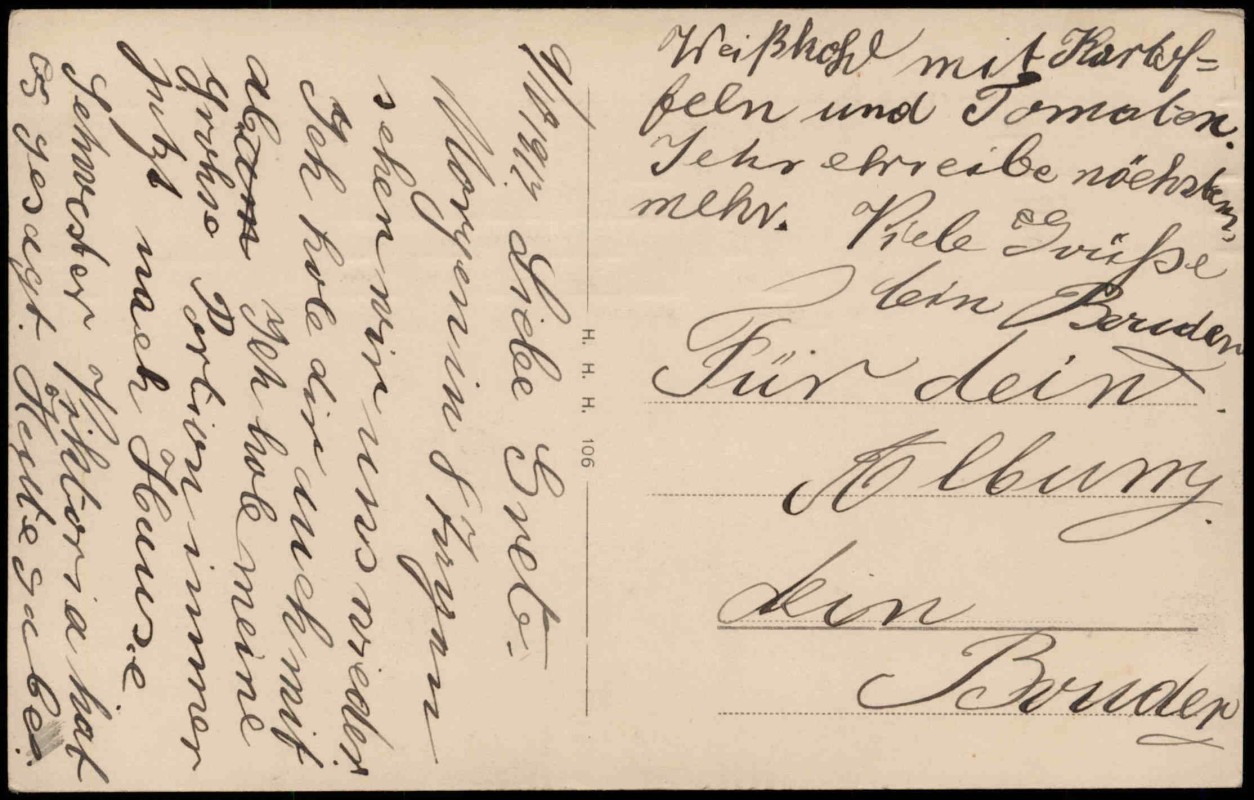 9/10 1917. Liebe Gret.
Morgen im 8 Uhr
sehen wir uns wieder.
Ich hole dir auch mit
ab. Ich hole meine
grohse Portion immer
jutzt nach Hause
Schwester Vihktoria hat
es gesagt. Heute
Weißkohl mit Kartof=
feln und Tomaten.
Ich schreibe nöchstens
mehr. Viele Grüße
dein Bruder
H. H. H. 106
Für dein
Album.
dein
Bruder